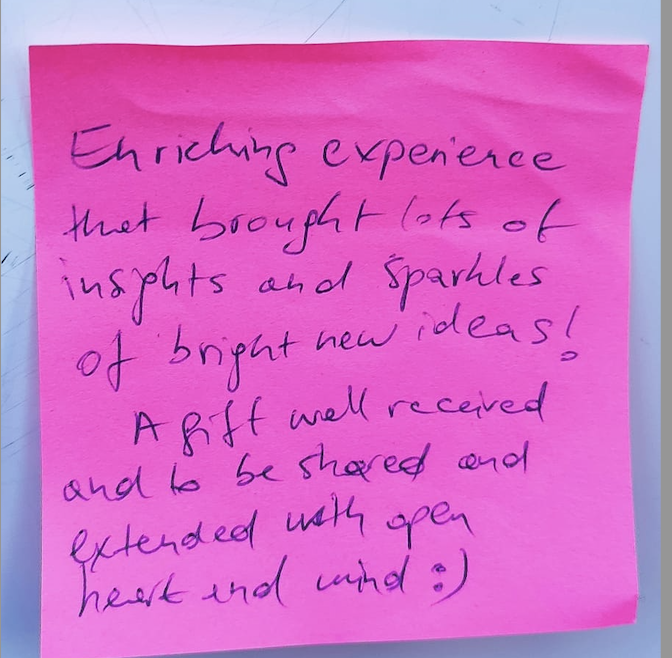 Enriching experience
that brought lots of
insights and sparkles
of bright new ideas!
A gift well received
and to be shared and
extended with open
heart and mind :)